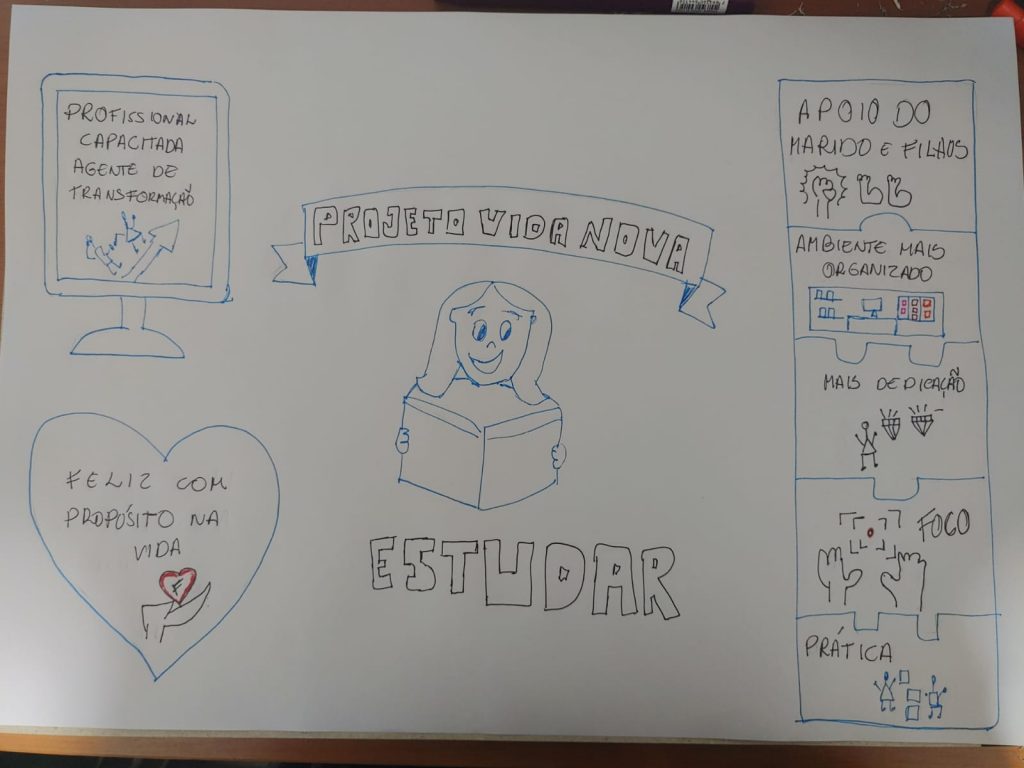 PROFISSIONAL
CAPACITADA
AGENTE DE
TRANSFORMAÇÃO
FELIZ COM
PROPÓSITO NA
VIDA
F
PROJETO VIDA NOVA
ESTUDAR
APOIO DO
MARIDO E FILHOS
AMBIENTE MAIS
ORGANIZADO
MAIS DEDICAÇÃO
FOCO
PRÁTICA